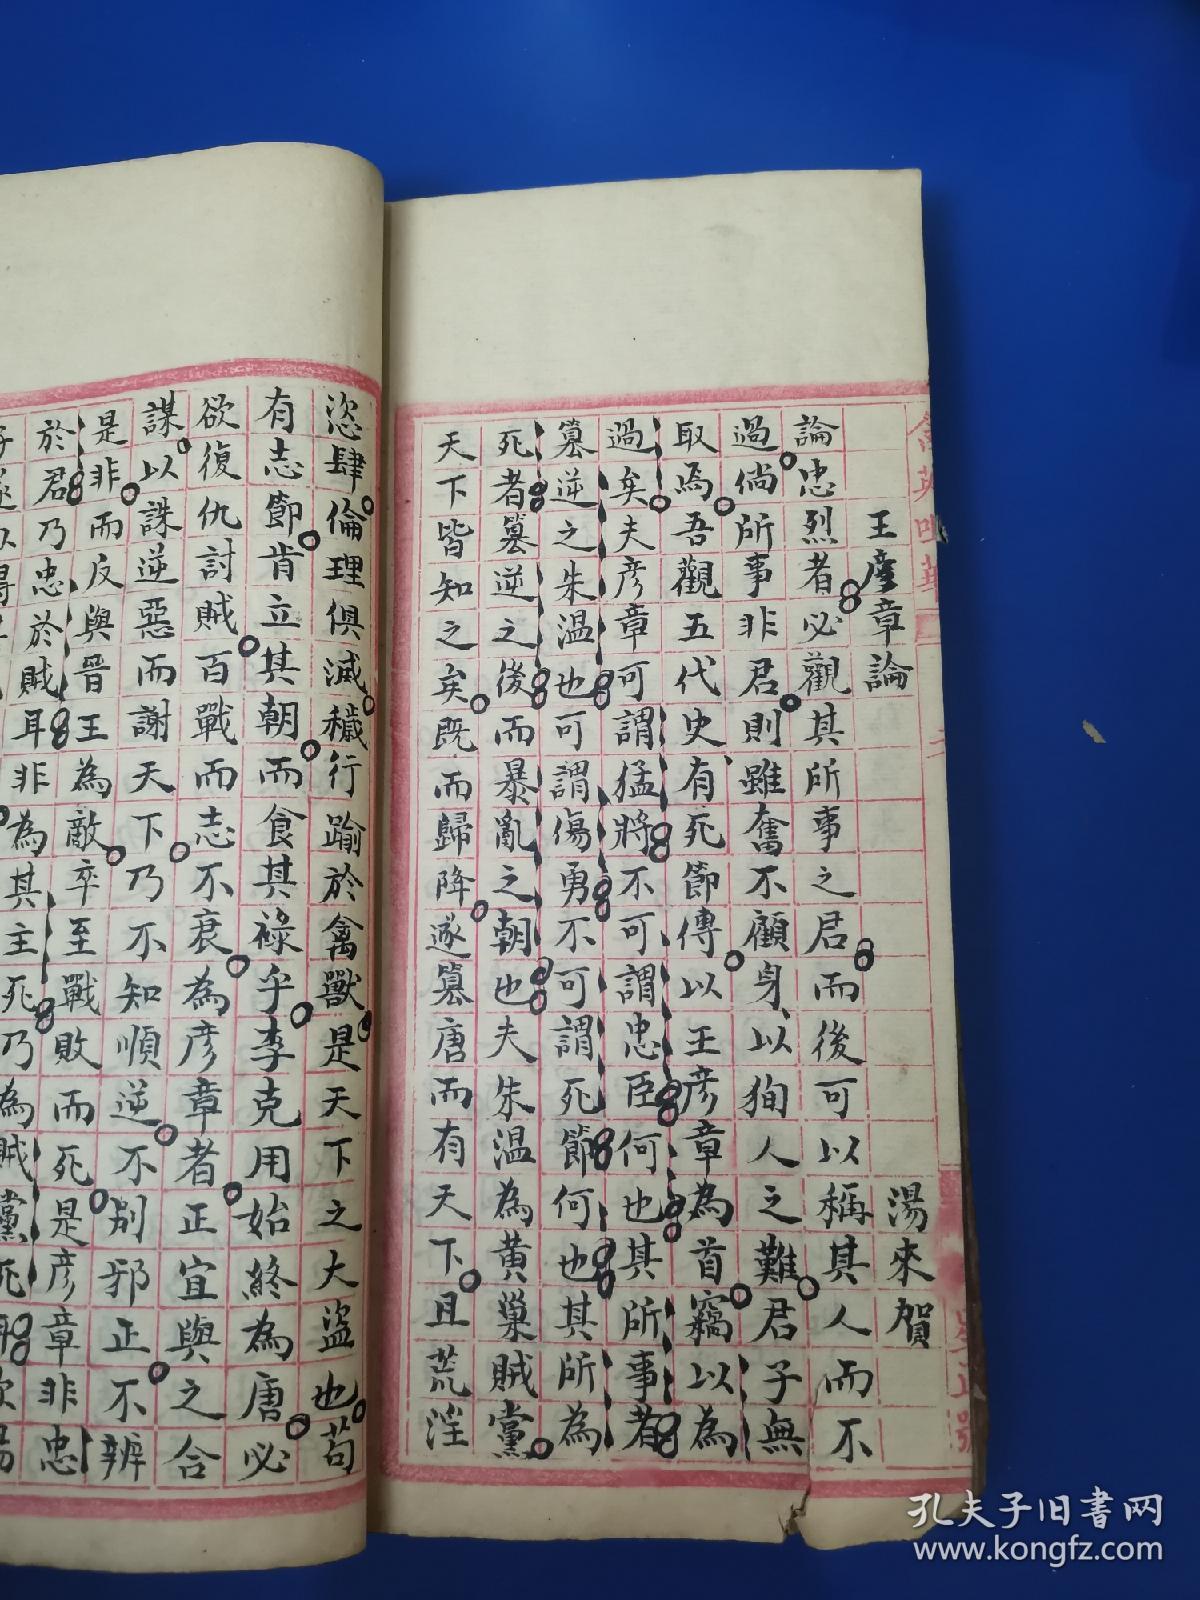 王彦章論
湯來賀
論忠烈者必觀其所事之君而後可以稱其人而不
過倘所事非君則雖奮不顧身以狥人之難君子無
取焉吾觀五代史有死節傳以王彦章為首竊以為
過矣夫彦章可謂猛將不可謂忠臣何也其所事者
篡逆之朱温也可謂傷勇不可謂死節何也其所為
死者篡逆之後而暴亂之朝也夫朱温為黄巢賊黨
天下皆知之矣既而歸降遂篡唐而有天下且荒淫
恣肆倫理俱滅穢行踰於禽獸是天下之大盜也苟
有志節肯立其朝而食其祿乎李克用始終為唐必
欲復仇討賊百戰而志不衰為彦章者正宜與之合
謀以誅逆惡而謝天下乃不知順逆不别邪正不辨
是非而反與晉王為敵卒至戰敗而死是彦章非忠
於君乃忠於賊耳非為其主死乃為賊黨死
孔夫子旧书网
www.kongfz.com